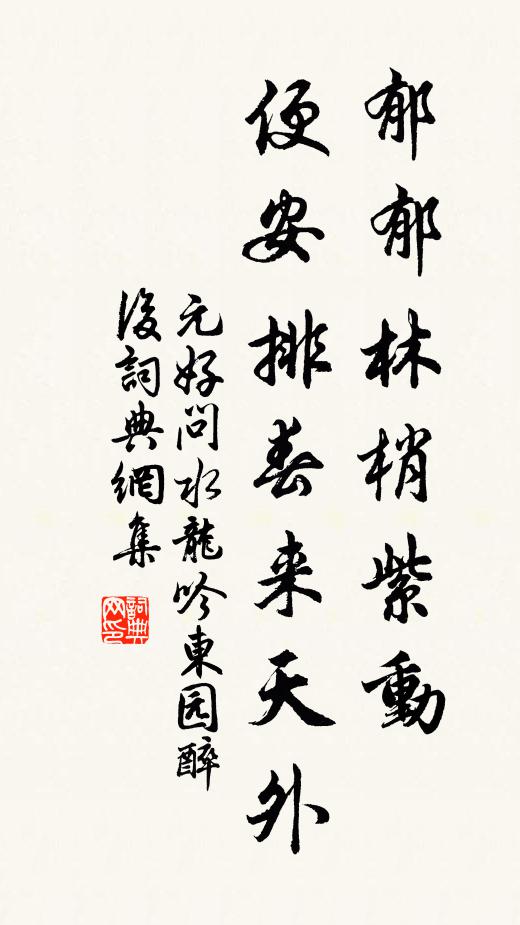 郁郁林梢紫動
便安排春来天外
元好问水龍吟東园醉
後詞典網集
詞典
网印